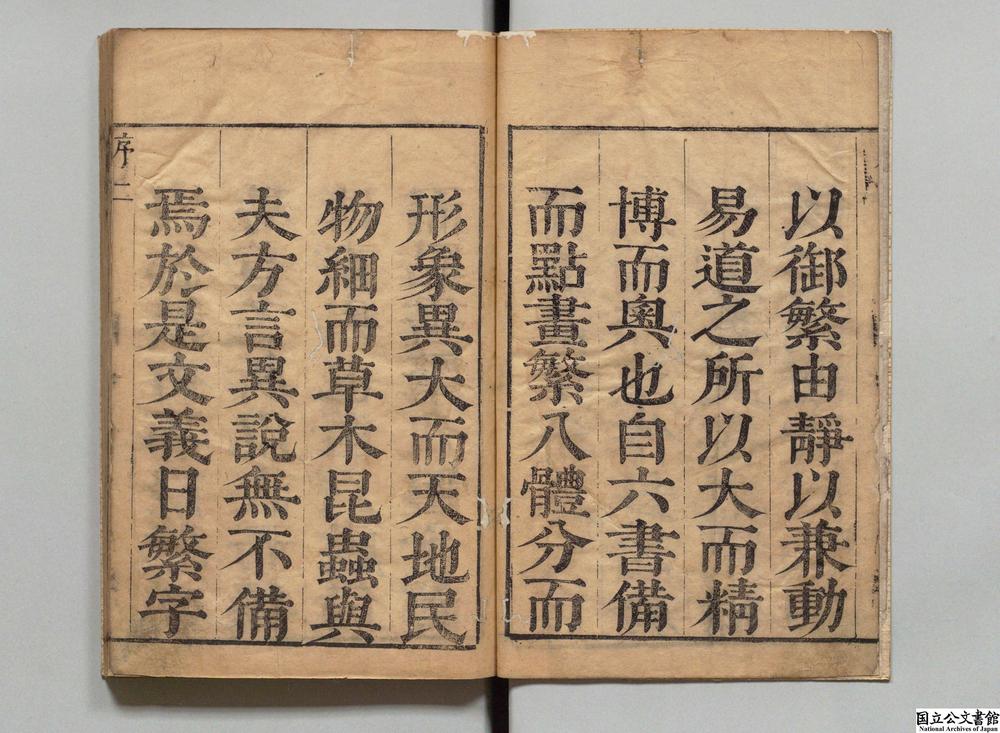 以御繁由靜以兼動
易道之所以大而精
博而奧也自六書備
而點畫繁八體分而
形象異大而天地民
物細而草木昆蟲與
夫方言異說無不備
焉於是文義日繁字
序 二
国立公文書館
National Archives of Japan